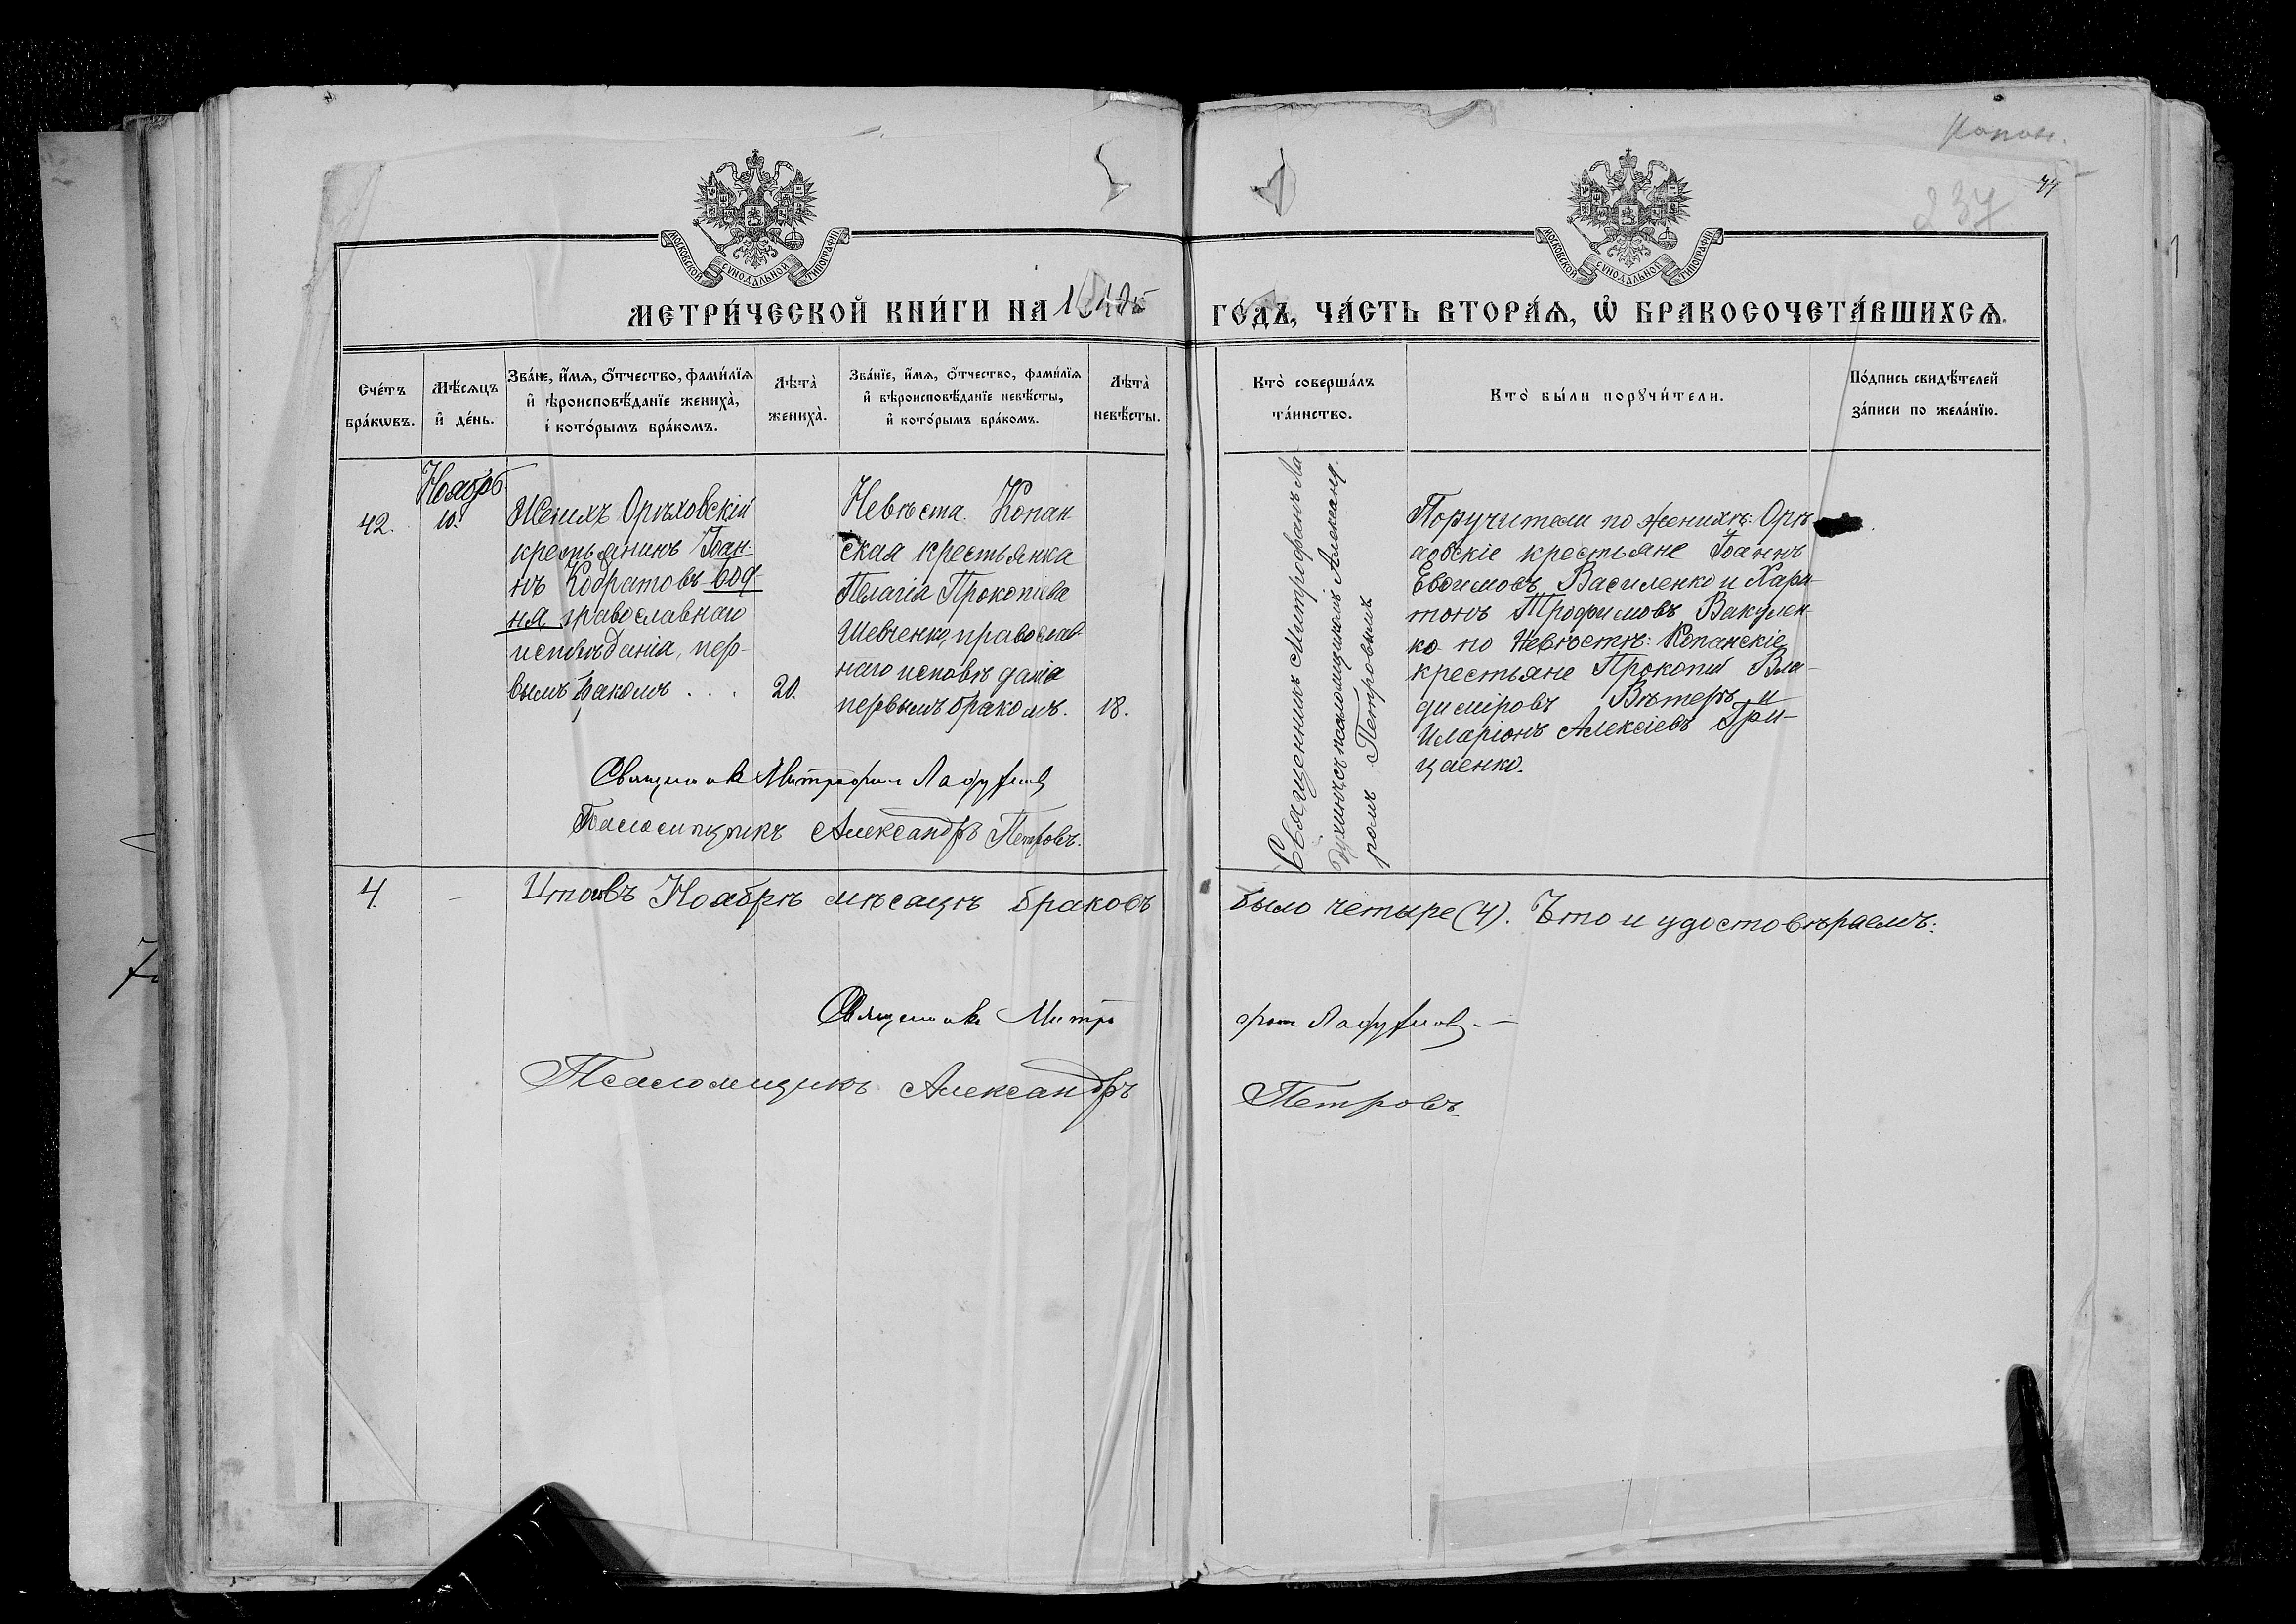 Копан.
237
44
МОСКОВСКОЙ СѴНОДАЛЬНОЙ ТИПОГРАФІИ
МОСКОВСКОЙ СѴНОДАЛЬНОЙ ТИПОГРАФІИ
МЕТРИ́ЧЕСКОЙ КНИ́ГИ НА
ГО́ДЪ, ЧА́СТЬ ВТОРА́Ѧ, Ѡ҆ БРАКОСОЧЕТА́ВШИХСѦ.
Сче́тъ бра́кѡвъ.
Мѣ́сяцъ и҆ де́нь.
Зва́не, и҆́мѧ, ѻ҆́тчество, фами́лїѧ
и҆ вѣроисповѣ́данїе жениха̀,
и҆ кото́рымъ бра́комъ.
Лѣта̀ жениха̀.
Зва́нїе, и҆́мѧ, ѻ҆́тчество, фами́лїѧ
и҆ вѣроисповѣ́данїе невѣ́сты,
и҆ кото́рымъ бра́комъ.
Лѣта̀ невѣ́сты.
Кто̀ соверша́лъ
та́инство.
Кто̀ бы́ли порꙋчи́тели.
По́дпись свидѣ́телей
за́писи по жела́нїю.
42.
Ноябрь
10.
Женихъ Орѣховскій
крестьянинъ Іоан-
нъ Кодратовъ Бод
ня, православнаго
исповѣданія, пер-
вымъ бракомъ . . .
20.
Невѣста Копан
ская крестьянка
Пелагія Прокопіева
Шевченко, православ
наго исповѣданія
первымъ бракомъ.
18.
Священникъ Митрофанъ Ла
духинъ съ псаломщикомъ Александ
ромъ Петровымъ
Поручители по женихѣ: Орѣ
ховскіе крестьяне Іоаннъ
Евфимовъ Василенко и Хари-
тонъ Трофимовъ Вакулен
ко по Невѣстѣ: Копанскіе
крестьяне Прокопій Вла-
диміровъ Вѣтеръ и
Иларіонъ Алексіевъ Гри-
цаенко.
Священникъ Митрофанъ
Псаломщикъ Александръ Петровъ.
4.
Итого въ Ноябрѣ мѣсяцѣ браковъ было четыре (4). Что и удостовѣряемъ:
Священникъ Митрофанъ
Псаломщикъ Александръ Петровъ.